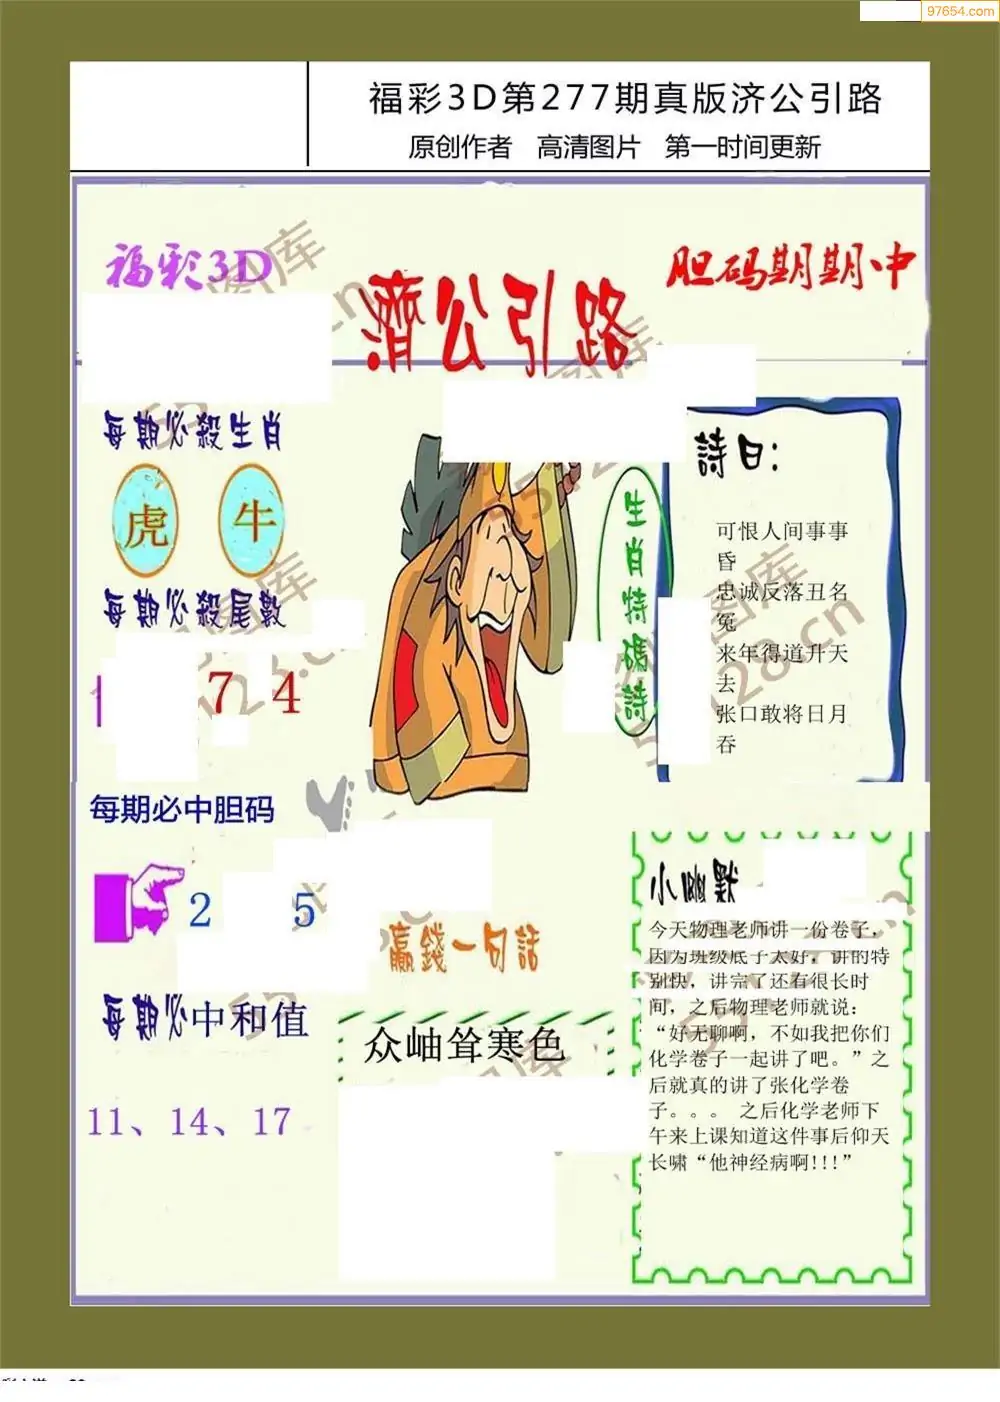 97654.com
福彩3D第277期真版济公引路
原创作者 高清图片 第一时间更新
福彩3D
濟公引路
胆码期期中
每期必殺生肖
虎 牛
每期必殺尾數
7 4
生肖特碼詩
詩曰:
可恨人间事事
昏
忠诚反落丑名
冤
来年得道升天
去
张口敢将日月
吞
每期必中胆码
2 5
每期必中和值
11、14、17
赢錢一句話
众岫耸寒色
小幽默
今天物理老师讲一份卷子，
因为班级底子太好，讲的特
别快，讲完了还有很长时
间，之后物理老师就说：
“好无聊啊，不如我把你们
化学卷子一起讲了吧。”之
后就真的讲了张化学卷
子。。。 之后化学老师下
午来上课知道这件事后仰天
长啸“他神经病啊!!!”